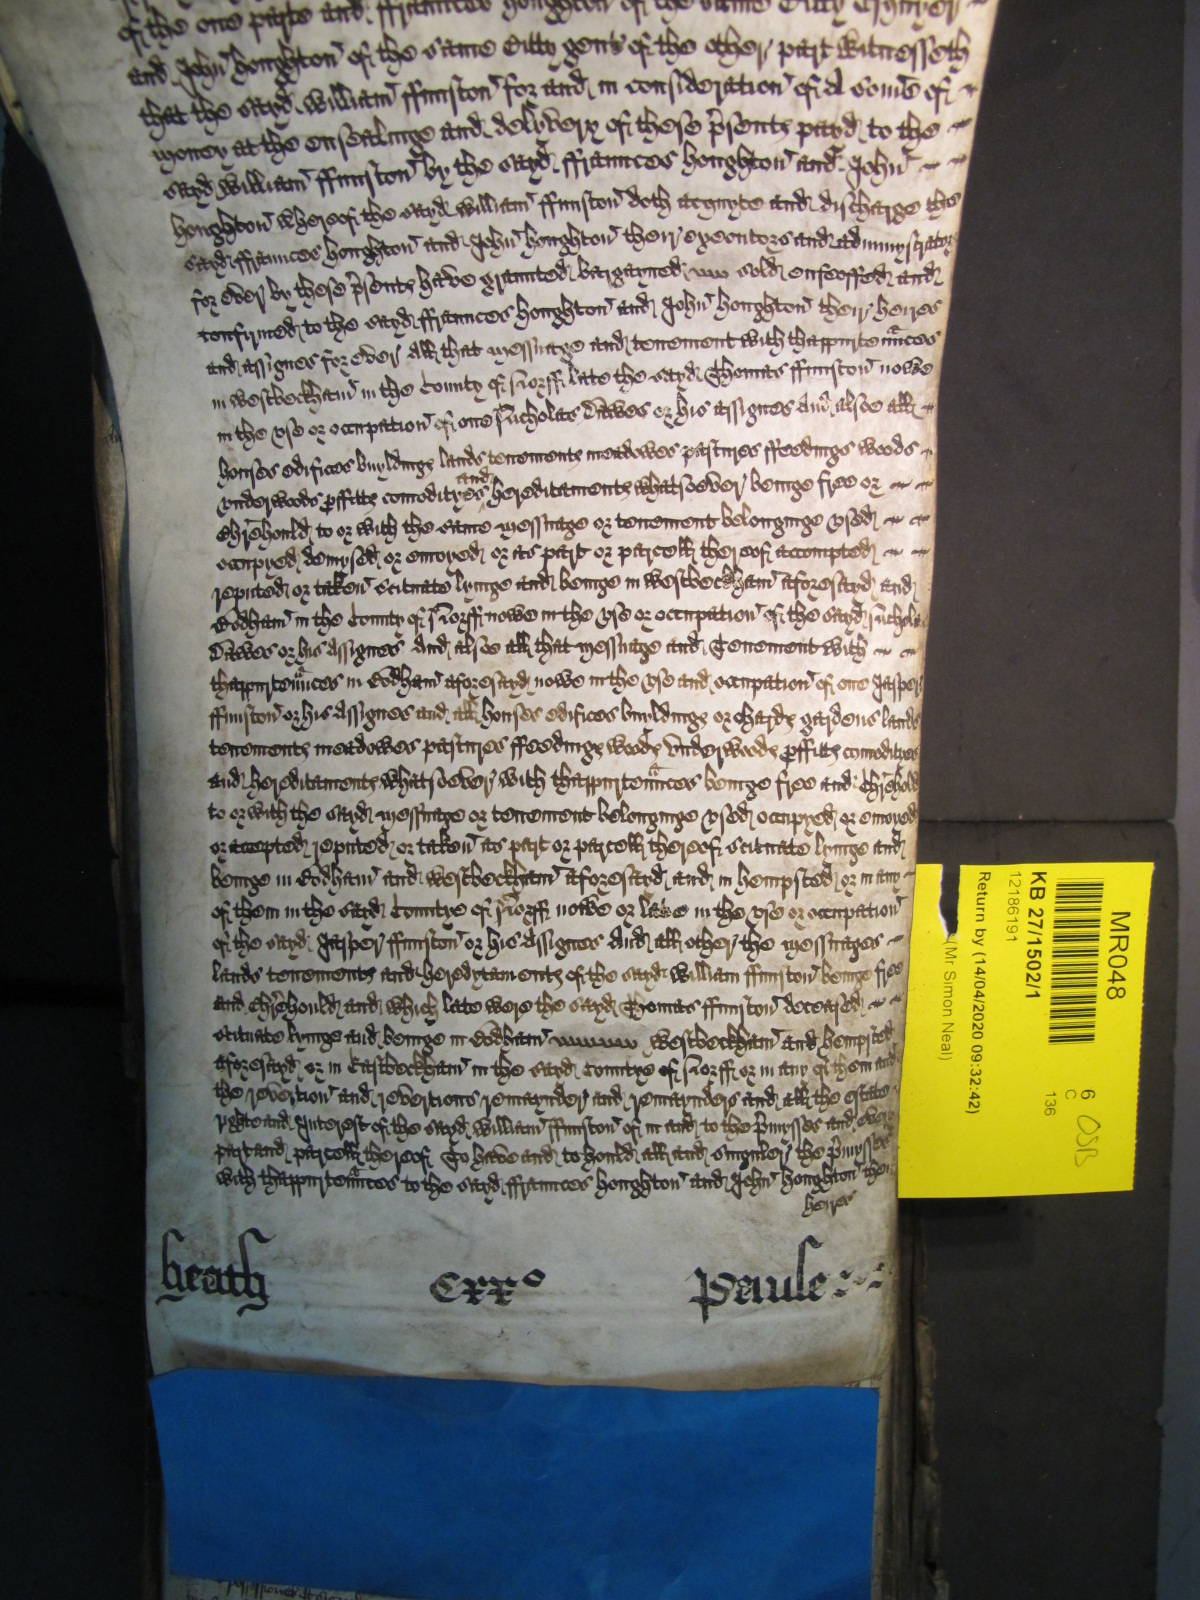 of the one parte and ffraunces houghton of the same Citty
and John houghton of the same Citty gent of the other part Witnesseth
that the sayd William ffunston for and in consideration of A some of
money at the ensealinge and delyvery of these p̃sents payd to the
sayd William ffunston by the sayd ffraunces houghton and John
houghton whereof the sayd William ffunston doth acquyte and discharge the
sayd ffraunces houghton and John houghton their executors and admynystrators
for ever by these p̃sents have graunted bargayned sold enfeoffed and
confirmed to the sayd ffraunces houghton and John houghton their heires
and assignes for ever All that messuage and tenement with thappurtennces
in westbeckham in the County of Norff late the sayd Thomas ffunston nowe
in the use or occupation of one Nicholas Dawes or his assignes And alsoe all
houses edifices buyldings lands tenements meadowes pastures ffeedings woods
underwoods proffitts comodityes and hereditaments whatsoever beinge free or
to or with the same messuage or tenement belonginge used
occupyed demysed or enioyed or as part or parcell thereof accompted
reputed or taken scituate lyinge and beinge in westbeckham aforesayd and
Bodham in the County of Norff nowe in the use or occupation of the sayd Nicholas
Dawes or his Assignes And alsoe all that messuage and Tenement with
thappurtennces in Bodham aforesayd nowe in the use and occupation of one Jasper
ffunston or his Assignes and all houses edifices buyldings orchards gardens lands
tenements meadowes pastures ffeedings woods underwoods proffitts comodityes
and hereditaments whatsoever with thappurtennces beinge free and
to or with the sayd messuage or tenement belonginge used occupyed or enioyed
or accepted reputed or taken as part or parcell thereof scituate lyinge and
beinge in Bodham and westbeckham aforesayd and in hempsted or in any
of them in the sayd Countye of Norff nowe or late in the use or occupation
of the sayd Jasper ffunston or his Assignes And all other the messuages
lands tenements and heredytaments of the sayd William ffunston beinge free
and and which late were the sayd Thomas ffunston deceased
scituate lyinge and beinge in Bodham westbeckham and hempsted
aforesayd or in Eastbeckham in the sayd Countye of Norff or in any of them and
the revertion and revertions remaynder and remaynders and all the estate
righte and Interest of the sayd William ffunston of in and to the p̃mysses and every
part and parcell thereof To have and to hould all and singuler the p̃mysses
with thappurtennces to the sayd ffraunces houghton and John houghton their
heires
heath Cxxº Paule
MR048
KB 27/1502/1
12186191
Return by (14/04/2020 09:32:42)
(Mr Simon Neal)
6
C
136
OSB